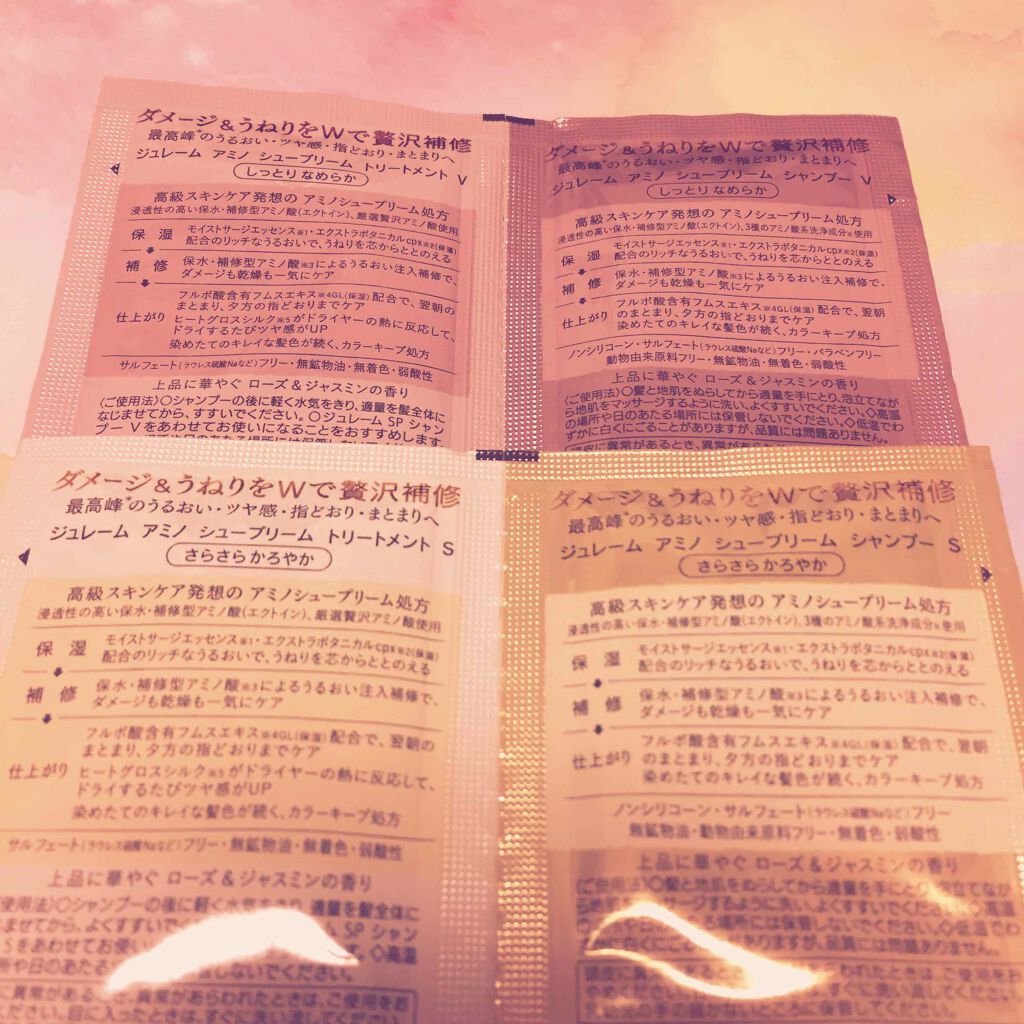 ダメージ&うねりをWで贅沢補修
最高峰*のうるおい・ツヤ感・指どおり・まとまりへ
ジュレーム アミノ シュープリーム トリートメント V
しっとり なめらか
高級スキンケア発想の アミノシュープリーム処方
浸透性の高い保水・補修型アミノ酸(エクトイン)、厳選贅沢アミノ酸使用
保湿 モイストサージエッセンス※1・エクストラボタニカルcpx※2(保湿)
配合のリッチなうるおいで、うねりを芯からととのえる
補修 保水・補修型アミノ酸※3によるうるおい注入補修で、
ダメージも乾燥も一気にケア
フルボ酸含有フムスエキス※4GL(保湿)配合で、翌朝の
まとまり、夕方の指どおりまでケア
仕上がり ヒートグロスシルク※5がドライヤーの熱に反応して、
ドライするたびツヤ感がUP
染めたてのキレイな髪色が続く、カラーキープ処方
サルフェート(ラウレス硫酸Naなど)フリー・無鉱物油・無着色・弱酸性
上品に華やぐ ローズ&ジャスミンの香り
〈ご使用法〉○シャンプーの後に軽く水気をきり、適量を髪全体に
なじませてから、すすいでください。○ジュレーム SP シャン
プー Vをあわせてお使いになることをおすすめします
ダメージ&うねりをWで贅沢補修
最高峰*のうるおい・ツヤ感・指どおり・まとまりへ
ジュレーム アミノ シュープリーム シャンプー V
しっとり なめらか
高級スキンケア発想の アミノシュープリーム処方
浸透性の高い保水・補修型アミノ酸(エクトイン)、3種のアミノ酸系洗浄成分※使用
保湿 モイストサージエッセンス※1・エクストラボタニカルcpx※2(保湿)
配合のリッチなうるおいで、うねりを芯からととのえる
補修 保水・補修型アミノ酸※3によるうるおい注入補修で、
ダメージも乾燥も一気にケア
フルボ酸含有フムスエキス※4GL(保湿)配合で、翌朝
仕上がり のまとまり、夕方の指どおりまでケア
染めたてのキレイな髪色が続く、カラーキープ処方
ノンシリコーン・サルフェート(ラウレス硫酸Naなど)フリー・パラベンフリー
動物由来原料フリー・無鉱物油・無着色・弱酸性
上品に華やぐ ローズ&ジャスミンの香り
〈ご使用法〉○髪と地肌をぬらしてから適量を手にとり、泡立てなが
ら地肌をマッサージするように洗い、よくすすいでください。◇高温
の場所や日のあたる場所には保管しないでください。◇低温でわ
ずかに白くにごることがありますが、品質には問題ありません。
頭皮に異常があるとき、異常があら
ダメージ&うねりをWで贅沢補修
最高峰*のうるおい・ツヤ感・指どおり・まとまりへ
ジュレーム アミノ シュープリーム トリートメント S
さらさら かろやか
高級スキンケア発想の アミノシュープリーム処方
浸透性の高い保水・補修型アミノ酸(エクトイン)、厳選贅沢アミノ酸使用
保湿 モイストサージエッセンス※1・エクストラボタニカルcpx※2(保湿)
配合のリッチなうるおいで、うねりを芯からととのえる
補修 保水・補修型アミノ酸※3によるうるおい注入補修で、
ダメージも乾燥も一気にケア
フルボ酸含有フムスエキス※4GL(保湿)配合で、翌朝の
まとまり、夕方の指どおりまでケア
仕上がり ヒートグロスシルク※5がドライヤーの熱に反応して、
ドライするたびツヤ感がUP
染めたてのキレイな髪色が続く、カラーキープ処方
サルフェート(ラウレス硫酸Naなど)フリー・無鉱物油・無着色・弱酸性
上品に華やぐ ローズ&ジャスミンの香り
ご使用法〉○シャンプーの後に軽く水気をきり、適量を髪全体に
じませてから、よくすすいでください ム SP シャン
Sをあわせてお使い ◇高温
所や日のあたる しないでください。
に異常があるとき、異常があらわれたときは、ご使用をお
ください。目に入ったときは、すぐに洗い流してください
ダメージ&うねりをWで贅沢補修
最高峰*のうるおい・ツヤ感・指どおり・まとまりへ
ジュレーム アミノ シュープリーム シャンプー S
さらさら かろやか
高級スキンケア発想の アミノシュープリーム処方
浸透性の高い保水・補修型アミノ酸(エクトイン)、3種のアミノ酸系洗浄成分※使用
保湿 モイストサージエッセンス※1・エクストラボタニカルcpx※2(保湿)
配合のリッチなうるおいで、うねりを芯からととのえる
補修 保水・補修型アミノ酸※3によるうるおい注入補修で、
ダメージも乾燥も一気にケア
フルボ酸含有フムスエキス※4GL(保湿)配合で、翌朝
仕上がり のまとまり、夕方の指どおりまでケア
染めたてのキレイな髪色が続く、カラーキープ処方
ノンシリコーン・サルフェート(ラウレス硫酸Naなど)フリー
無鉱物油・動物由来原料フリー・無着色・弱酸性
上品に華やぐ ローズ&ジャスミンの香り
〈ご使用法〉○髪と地肌をぬらしてから適量を手にとり、泡立てなが
サージするように洗い、よくすすいでください。◇高温
たる場所には保管しないでください。◇低温でわ
白くにごることがありますが、品質には問題ありません。
頭皮に異常があるとき
の手の届かないところに保管してください。